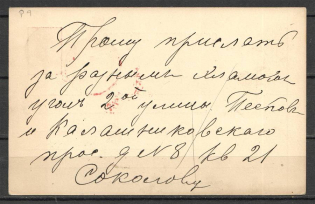 Прошу прислать
за разными хламомъ
уголъ 2ой улицы Песковъ
и Калашниковскаго
прос. д № 8 кв 21
Соколову